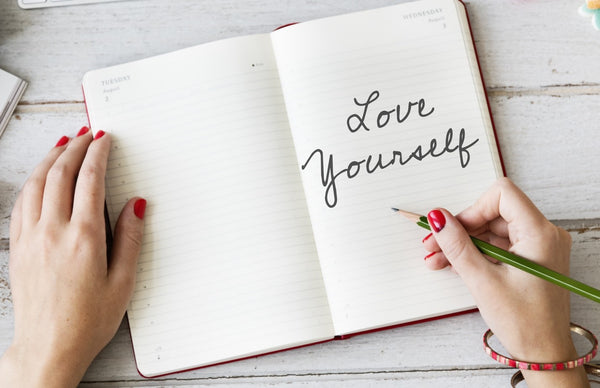 TUESDAY
August
2
WEDNESDAY
August
3
Love
Yourself